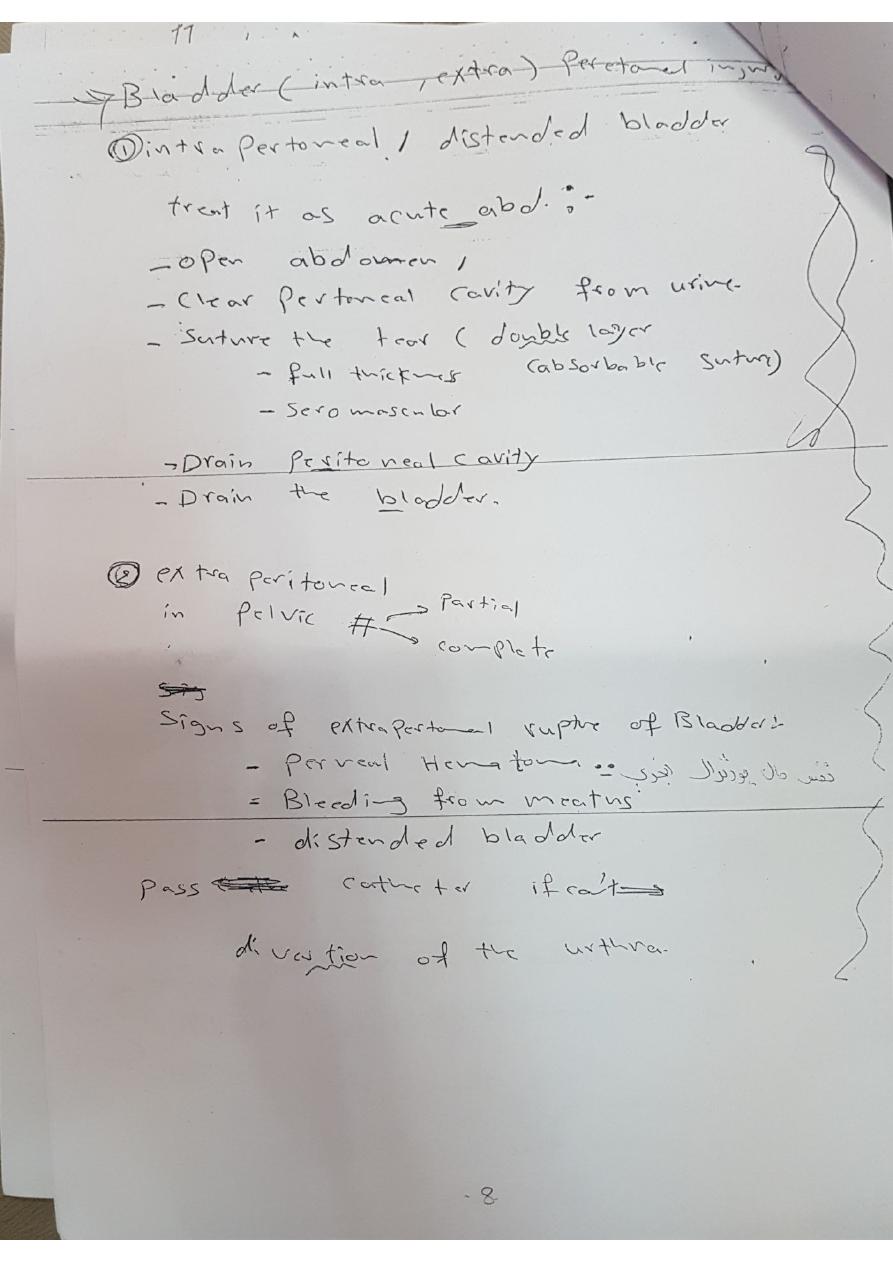 11
→ Bladder (intra, extra) Peretoneal injury
① intra pertoneal / distended bladder
treat it as acute abd. :-
- open abdomen,
- Clear Pertoneal cavity from urine.
- Suture the tear (double layer
(absorbable suture)
- full thicknes
- Seromascular
- Drain Peritoneal cavity
- Drain the bladder.
② extra peritoneal
in Pelvic # → Partial
→ complete
Signs of extrapertoneal ruptre of Bladder:-
- Perneal Hematoma ::
= Bleeding from meatus
- distended bladder
Pass catheter if ca't →
divertion of the urthra.
- 8